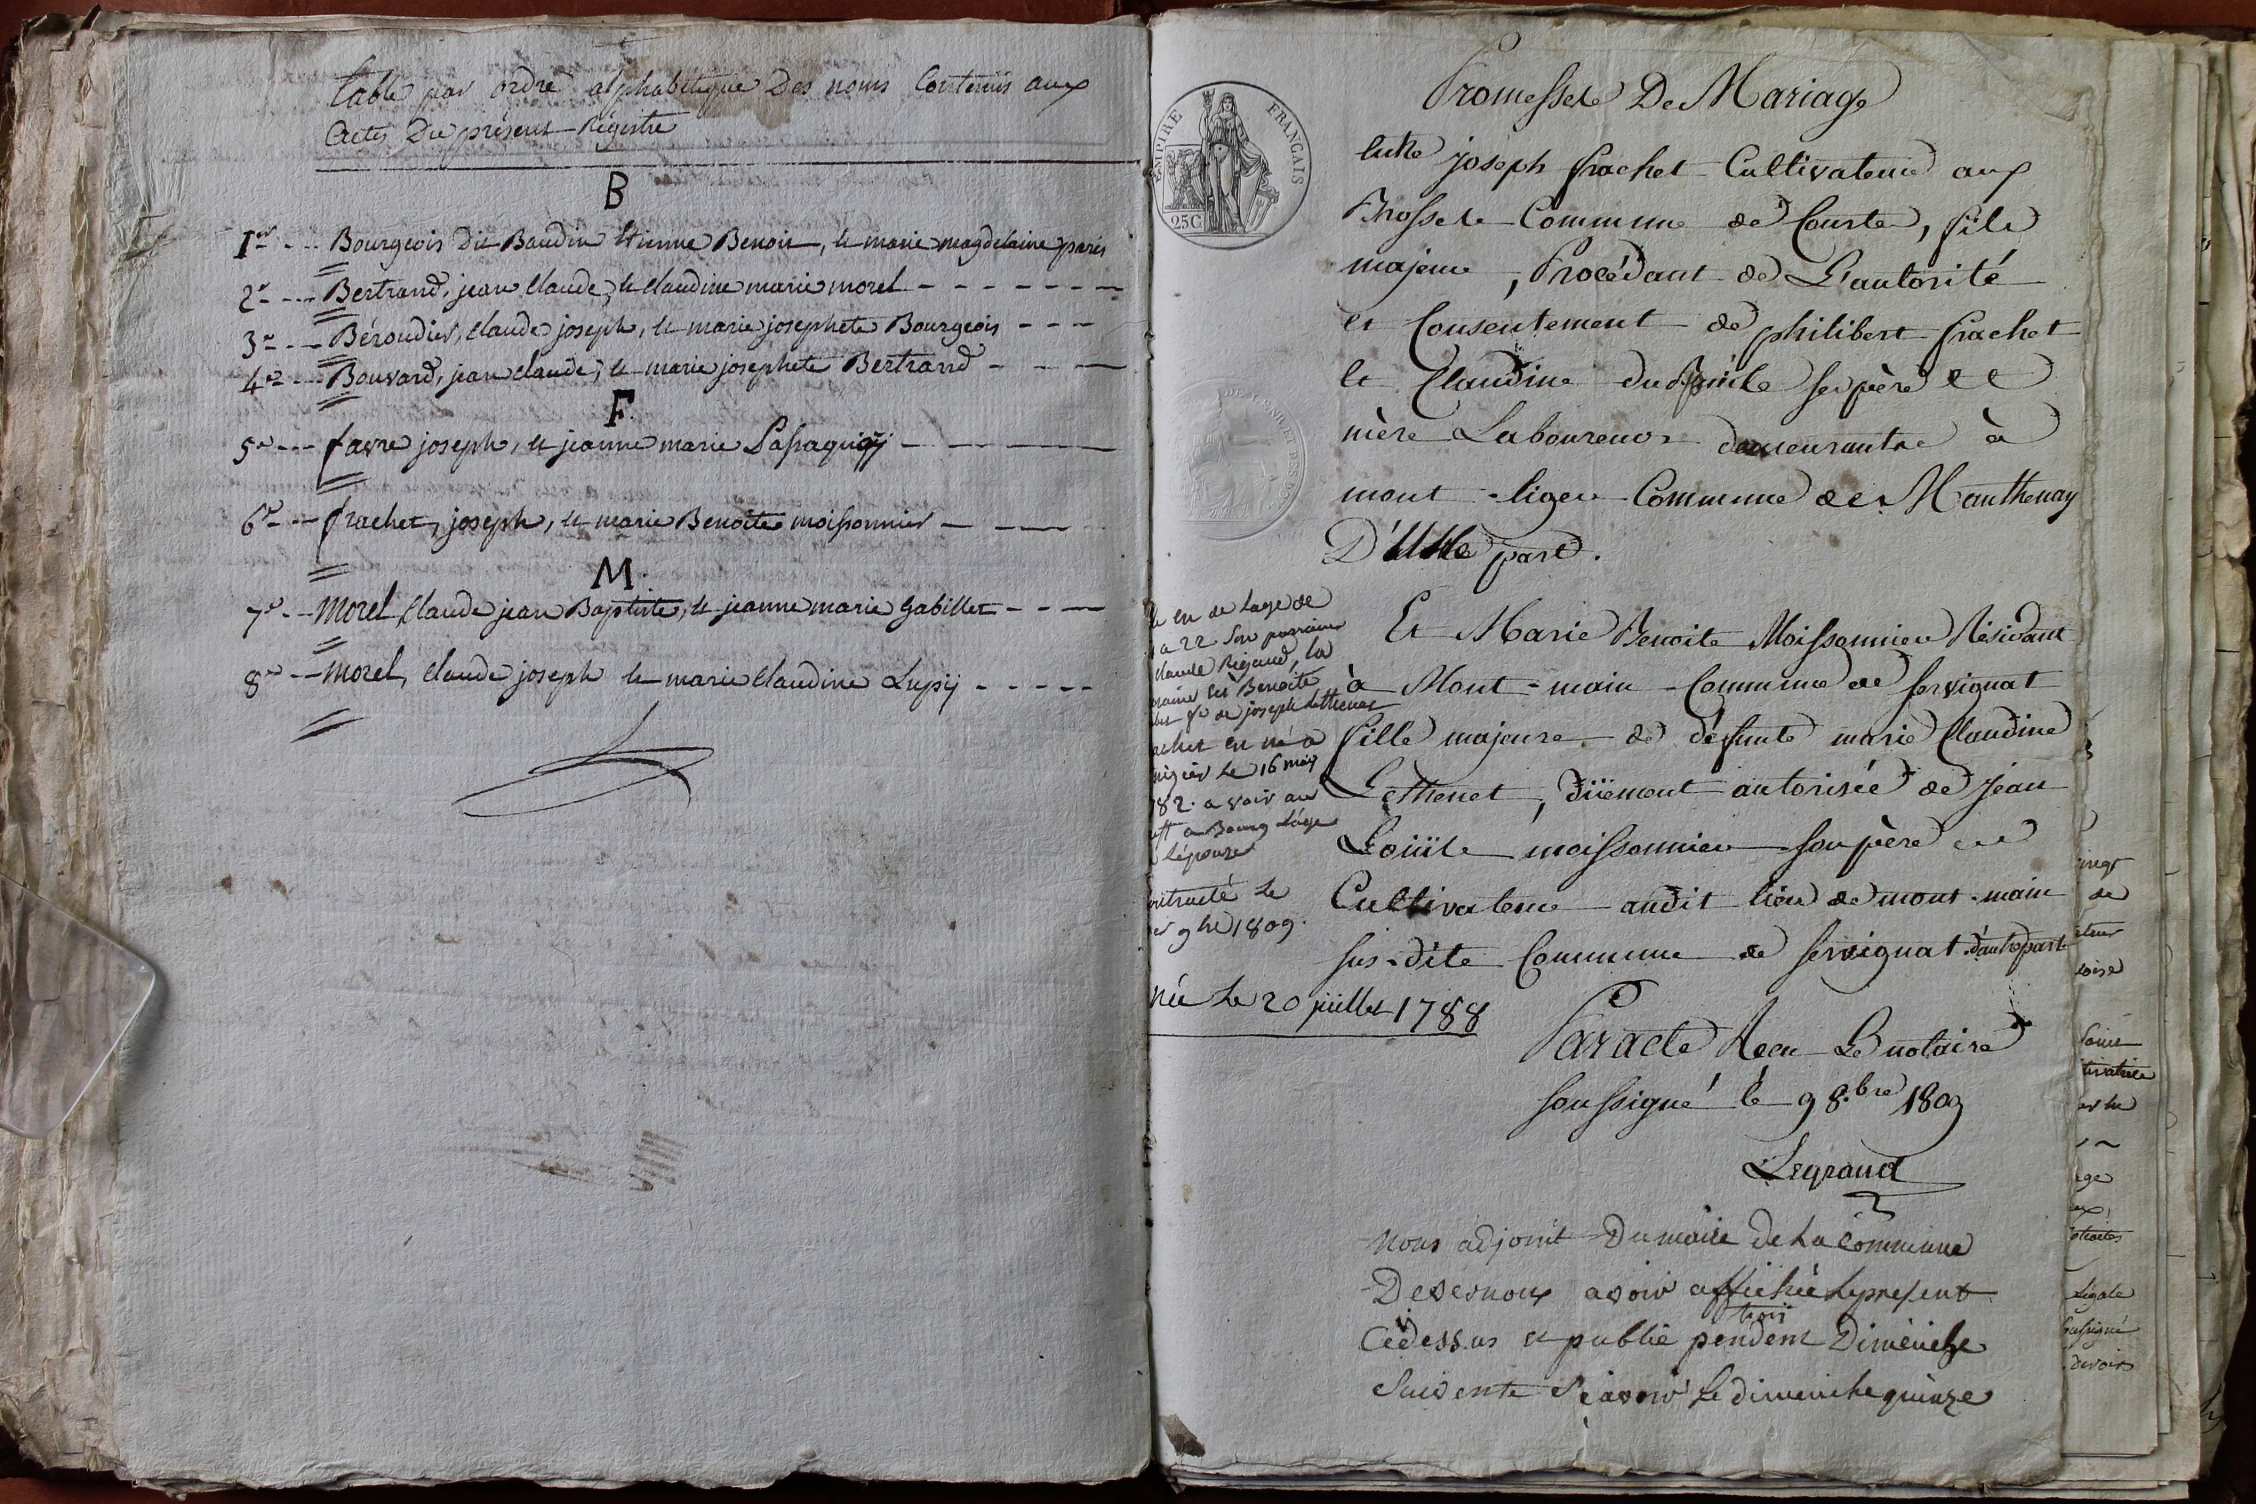 Table par ordre alphabétique Des noms Contenus aux
Actes Du présent Régistre
B
1er Bourgeois dit Baudin Etienne Benoit, et marie magdelaine paris
2e Bertrand, jean claude, et claudine marie morel
3e Béroudier, claude joseph, et marie josephete Bourgeois
4e Bouvard, jean claude, et marie josephete Bertrand
F.
5e favre joseph, et jeanne marie
6e frachet, joseph, et marie Benoite moissonnier
M.
7e Morel, Claude jean Baptiste, et jeanne marie Gabillet
8e Morel, claude joseph et marie claudine Lupij
EMPIRE FRANÇAIS
25C
Promesses De Mariage
Entre joseph frachet Cultivateur aux
Brosses Commune de Courtes, fils
majeur, Procédant de L'autorité
et Consentement de philibert frachet
et Claudine ses père et
mère Laboureurs demeurants à
mont-liger Commune de Manthenay
D'Une part.
Et Marie Benoite Moissonnier Résidant
à Mont-main Commune de Servignat
fille majeure de défunte marie Claudine
Lethenet, düement autorisée de Jean
Loüis moissonnier son père
Cultivateur audit lieu de mont-main
sus-dite Commune de Servignat d'autre part
Par acte Recu Le notaire
soussigné le 9 8.bre 1809
Legrand
en de Lage de
a 22 Son parrain
claude Rigaud, la
est Benoite
fe de joseph Lethenet
en né a
le 16 may
82. a voir au
a Bourg L'age
L'épouse
Le
9bre 1809.
née Le 20 juillet 1788
nous adjoint Du maire de La Commune
Devernoux avoir affichée Le present
trois
Cidessus et publié pendent Dimenche
Suivente Seavoir Le dimenche quinze